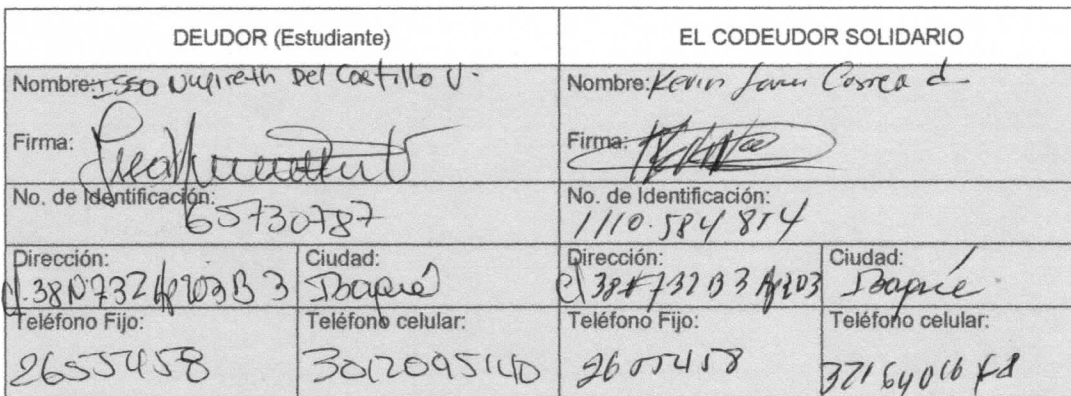 DEUDOR (Estudiante)
EL CODEUDOR SOLIDARIO
Nombre: Del Castillo V.
Nombre: Kevin Correa
Firma:
Firma:
No. de Identificación:
65730787
No. de Identificación:
1110.584 814
Dirección:
Cl. 38 N 732 B 3
Ciudad:
Ibagué
Dirección:
Cl 38 # 732 B 3 Ap203
Ciudad:
Ibague
Teléfono Fijo:
2655458
Teléfono celular:
3012095140
Teléfono Fijo:
2655458
Teléfono celular: